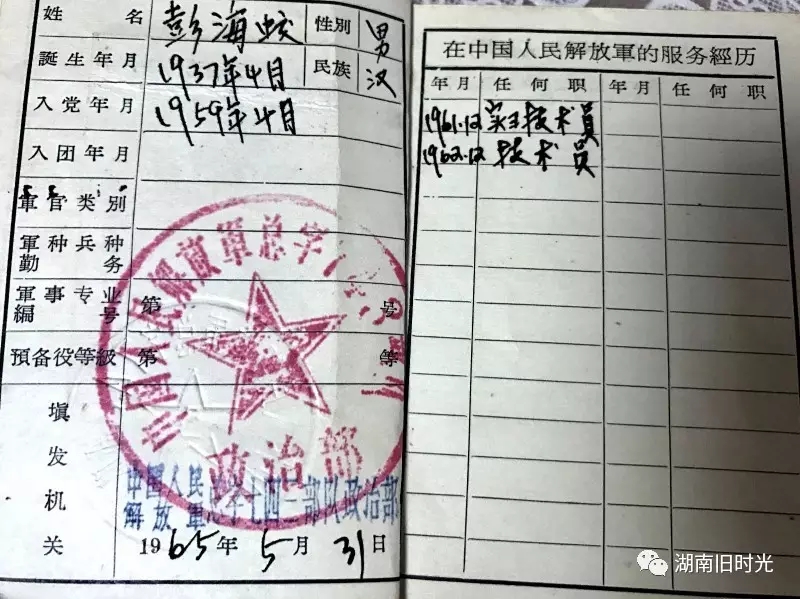 姓名 彭海蛟 性别 男
誕生年月 1937年4月 民族 汉
入党年月 1959年4月
入团年月
軍官类别
軍种兵种
勤务
軍事专业 第 号
編号
預备役等級 第 等
填发机关
政治部
中国人民
解放軍 七四二部队政治部
1965年5月31日
在中国人民解放軍的服务經历
年月 任何职 年月 任何职
1961.12 实习技术員
1962.12 技术員
湖南旧时光